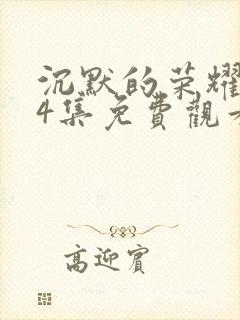 沉默的荣耀
4集免費觀
高迎賓